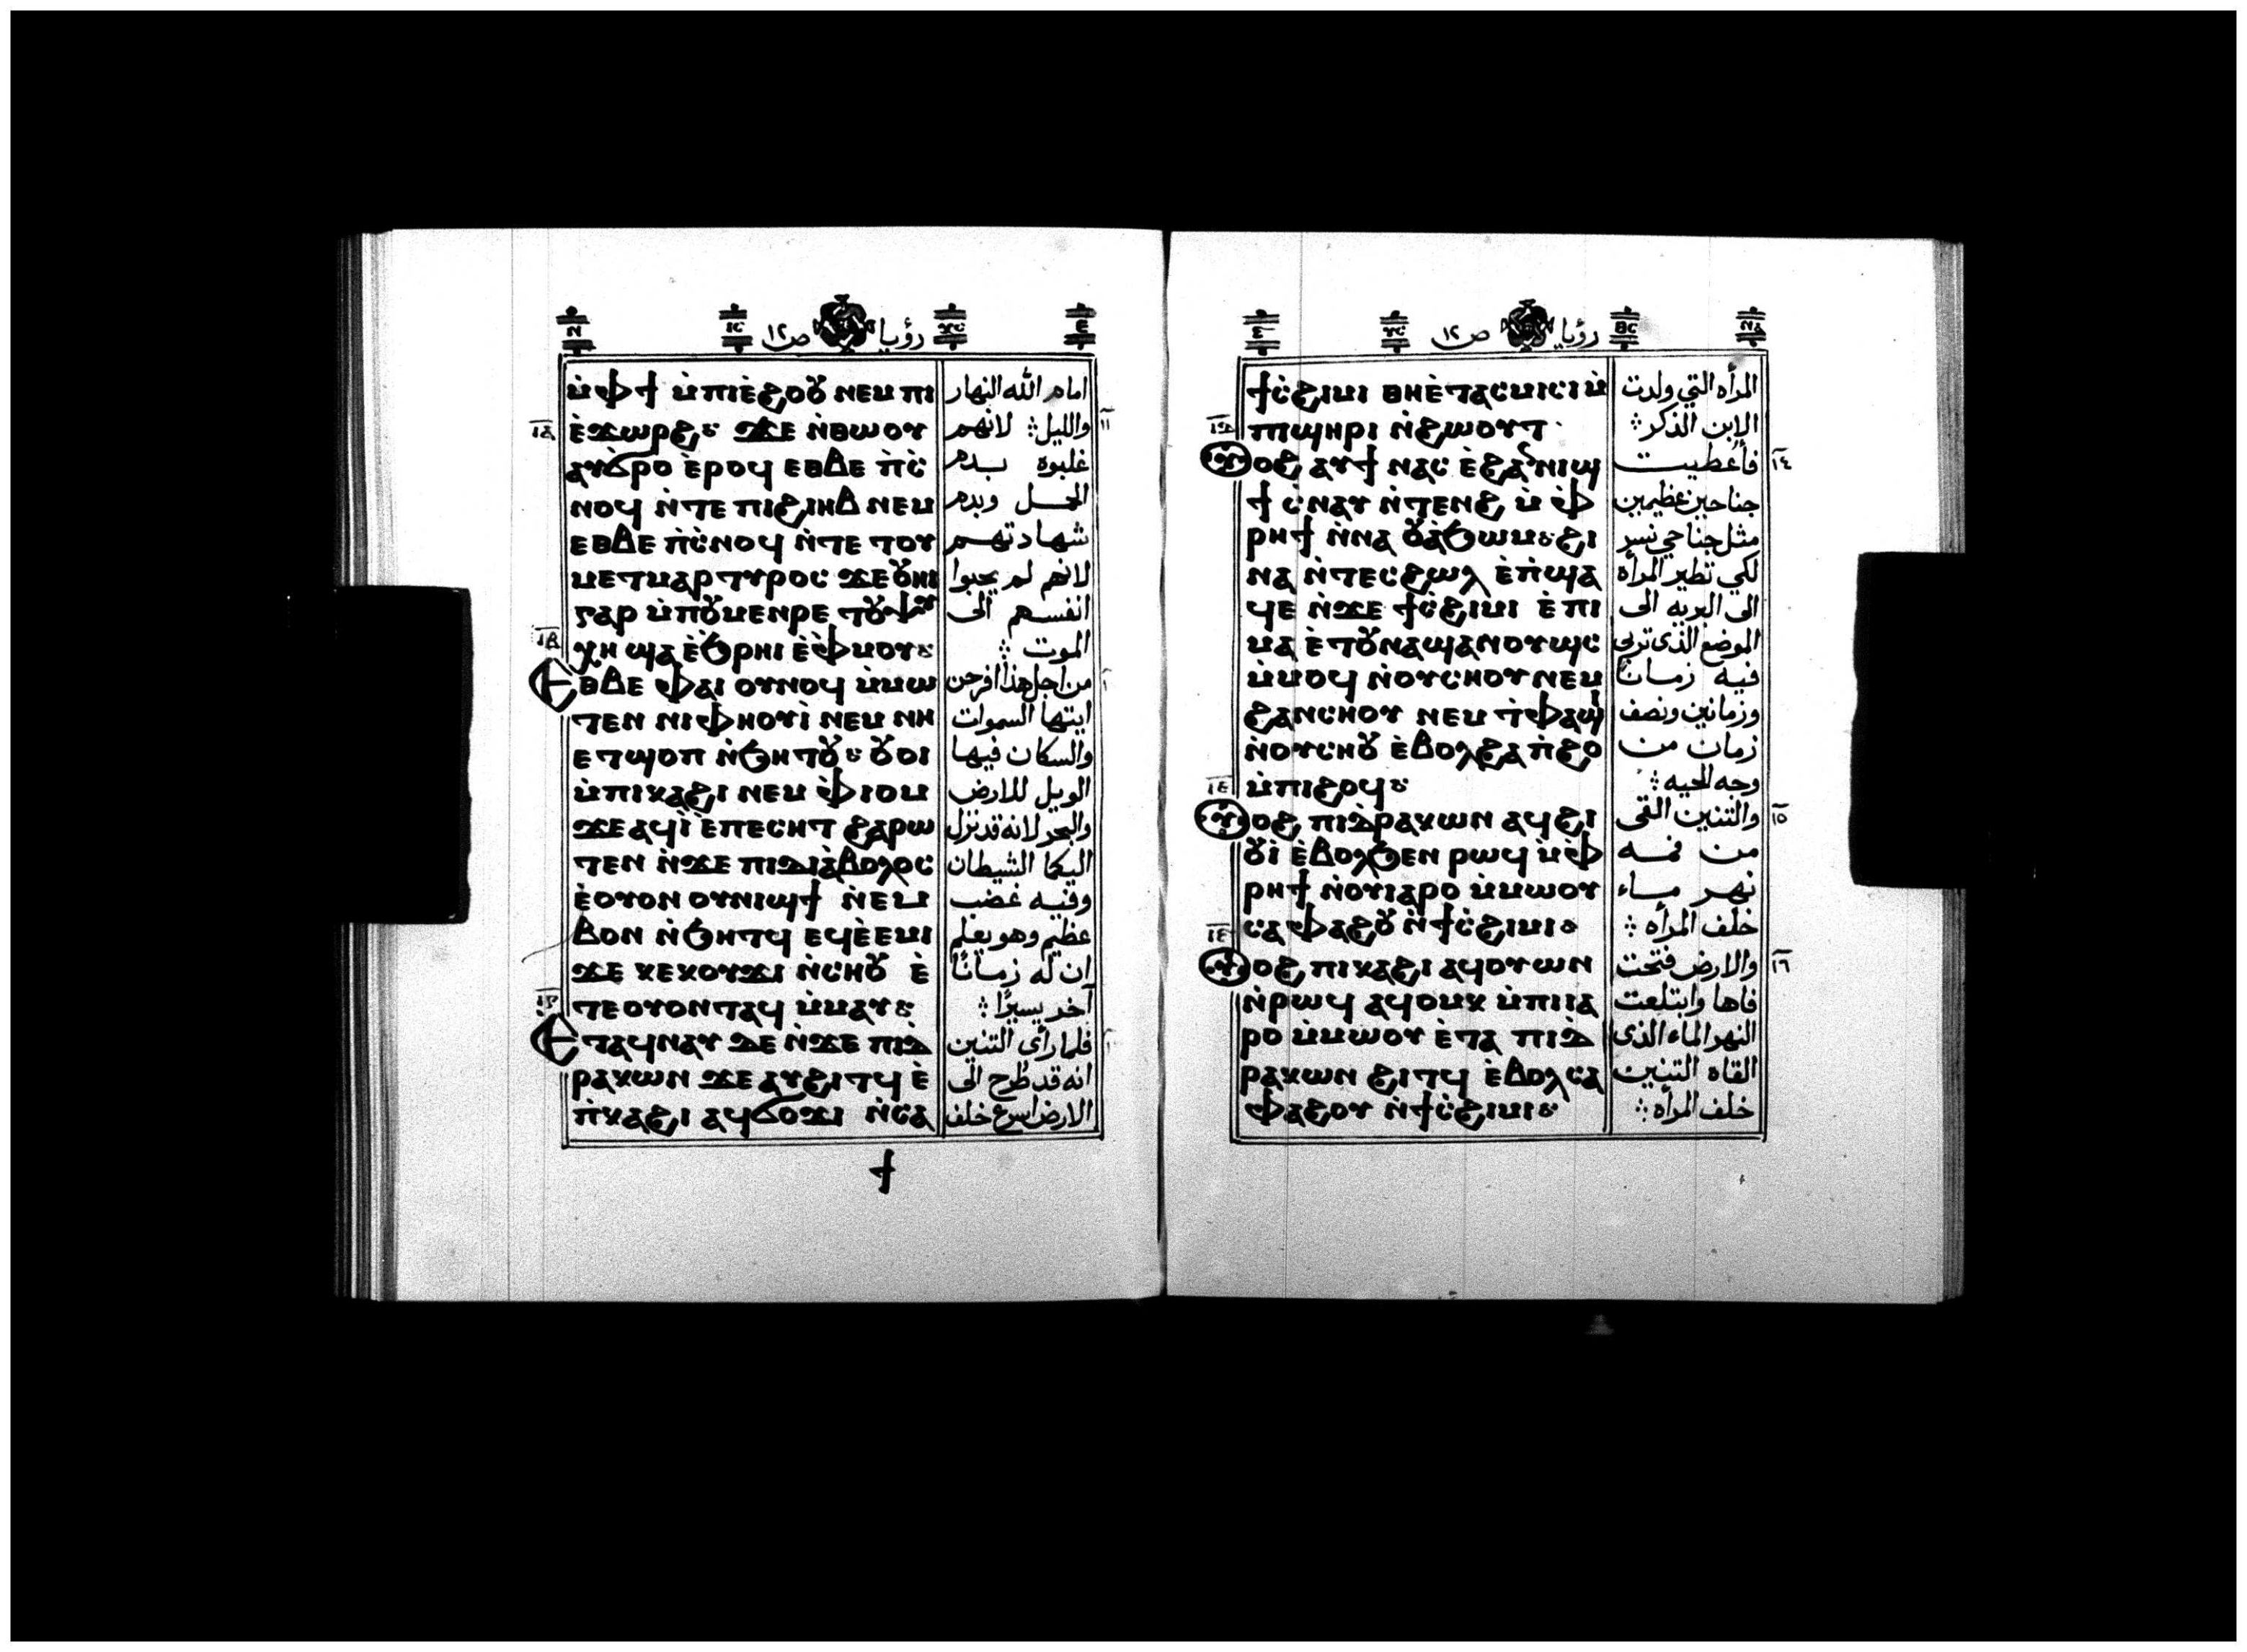 ⲛ̄ ⲓⲥ رؤيا ص ١٢ ⲭⲥ ⲉ
ⲙ̀ⲫϯ ⲙ̀ⲡⲓⲉ̀ϩⲟⲟⲩ ⲛⲉⲙ ⲡⲓ
ⲓⲁ
ⲉ̀ϫⲱⲣϩ ϫⲉ ⲛ̀ⲑⲱⲟⲩ
ⲁⲩϭⲣⲟ ⲉ̀ⲣⲟϥ ⲉⲑⲃⲉ ⲡ̀ⲥ̀
ⲛⲟϥ ⲛ̀ⲧⲉ ⲡⲓϩⲓⲏⲃ ⲛⲉⲙ
ⲉⲑⲃⲉ ⲡ̀ⲥ̀ⲛⲟϥ ⲛ̀ⲧⲉ ⲧⲟⲩ
ⲙⲉⲧⲙⲁⲣⲧⲩⲣⲟⲥ ϫⲉ ⲟⲩⲏⲓ
ⲅⲁⲣ ⲙ̀ⲡⲟⲩⲙⲉⲛⲣⲉ ⲧⲟⲩⲯⲩ
ⲓⲃ
ⲭⲏ ϣⲁ ⲉ̀ϧⲣⲏⲓ ⲉ̀ⲫ̀ⲙⲟⲩ
ⲉⲑⲃⲉ ⲫⲁⲓ ⲟⲩⲛⲟϥ ⲙ̀ⲙⲱ
ⲧⲉⲛ ⲛⲓⲫⲏⲟⲩⲓ̀ ⲛⲉⲙ ⲛⲏ
ⲉⲧϣⲟⲡ ⲛ̀ϧⲏⲧⲟⲩ ⲟⲩⲟⲓ
ⲙ̀ⲡⲓⲕⲁϩⲓ ⲛⲉⲙ ⲫ̀ⲓⲟⲙ
ϫⲉ ⲁϥⲓ̀ ⲉ̀ⲡⲉⲥⲏⲧ ϩⲁⲣⲱ
ⲧⲉⲛ ⲛ̀ϫⲉ ⲡⲓⲇⲓⲁ̀ⲃⲟⲗⲟⲥ
ⲉ̀ⲟⲩⲟⲛ ⲟⲩⲛⲓϣϯ ⲛ̀ⲉⲙ
ⲃⲟⲛ ⲛ̀ϧⲏⲧϥ ⲉϥⲉ̀ⲉⲙⲓ
ϫⲉ ⲕⲉⲕⲟⲩϫⲓ ⲛ̀ⲥⲏⲟⲩ ⲉ̀
ⲓⲅ
ⲧⲉⲟⲩⲟⲛⲧⲁϥ ⲙ̀ⲙⲁⲩ
ⲉⲧⲁϥⲛⲁⲩ ⲇⲉ ⲛ̀ϫⲉ ⲡⲓⲇ̀
ⲣⲁⲕⲱⲛ ϫⲉ ⲁⲩϩⲓⲧϥ ⲉ̀
ⲡ̀ⲕⲁϩⲓ ⲁϥϭⲟϫⲓ ⲛ̀ⲥⲁ
امام الله النهار
والليل لانهم ١١
غلبوه بدم
الحمل وبدم
شهادتهم
لانهم لم يحبوا
انفسهم الى
الموت
من اجل هذا افرحن
ايتها السموات
والسكان فيها
الويل للارض
والبحر لانه قد نزل
اليكما الشيطان
وفيه غضب
عظيم وهو يعلم
ان له زمانًا
آخر يسيرًا
فلما رأى التنين
انه قد طُرح الى
الارض اسرع خلف
ϯ
ⲉ ⲭⲥ رؤيا ص ١٢ ⲑⲥ ⲛⲁ
ϯⲥ̀ϩⲓⲙⲓ ⲑⲏⲉ̀ⲧⲁⲥⲙⲓⲥⲓ ⲙ̀
ⲡⲓϣⲏⲣⲓ ⲛ̀ϩⲱⲟⲩⲧ
ⲟⲩⲟϩ ⲁⲩϯ ⲛⲁⲥ ⲉ̀ϩⲁⲛⲛⲓϣ
ϯ ⲥ̀ⲛⲁⲩ ⲛ̀ⲧⲉⲛϩ ⲙ̀ ⲫ̀
ⲣⲏϯ ⲛ̀ⲛⲁ ⲟⲩⲁ̀ϧⲱⲙ ϩⲓ
ⲛⲁ ⲛ̀ⲧⲉⲥϩⲱⲗ ⲉ̀ⲡ̀ϣⲁ
ϥⲉ ⲛ̀ϫⲉ ϯⲥ̀ϩⲓⲙⲓ ⲉ̀ ⲡⲓ
ⲙⲁ ⲉ̀ⲧⲟⲩⲛⲁϣⲁⲛⲟⲩϣⲥ
ⲙ̀ⲙⲟϥ ⲛ̀ⲟⲩⲥⲏⲟⲩ ⲛⲉⲙ
ϩⲁⲛⲥⲏⲟⲩ ⲛⲉⲙ ⲧ̀ⲫⲁϣⲓ
ⲛ̀ⲟⲩⲥⲏⲟⲩ ⲉ̀ⲃⲟⲗϩⲁ ⲡ̀ϩⲟ
ⲙ̀ⲡⲓϩⲟϥ
ⲟⲩⲟϩ ⲡⲓⲇ̀ⲣⲁⲕⲱⲛ ⲁϥϩⲓ
ⲟⲩⲓ̀ ⲉ̀ⲃⲟⲗϧⲉⲛ ⲣⲱϥ ⲙ̀ⲫ̀
ⲣⲏϯ ⲛ̀ⲟⲩⲓⲁⲣⲟ ⲙ̀ⲙⲱⲟⲩ
ⲥⲁ ⲫⲁϩⲟⲩ ⲛ̀ϯⲥ̀ϩⲓⲙⲓ
ⲟⲩⲟϩ ⲡⲓⲕⲁϩⲓ ⲁϥⲟⲩⲱⲛ
ⲛ̀ⲣⲱϥ ⲁϥⲟⲙⲕ ⲙ̀ⲡⲓⲓⲁ
ⲣⲟ ⲙ̀ⲙⲱⲟⲩ ⲉ̀ⲧⲁ ⲡⲓⲇ̀
ⲣⲁⲕⲱⲛ ϩⲓⲧϥ ⲉ̀ⲃⲟⲗ ⲥⲁ
ⲫⲁϩⲟⲩ ⲛ̀ϯⲥ̀ϩⲓⲙⲓ
المرأه التي ولدت
الابن الذكر
فأعطيت ١٤
جناحين عظيمين
مثل جناحي نسر
لكي تطير المرأه
الى البريه الى
الموضع الذى تربى
فيه زمانًا
وزمانين ونصف
زمان من
وجه الحيه
والتنين القى ١٥
من فمه
نهر ماء
خلف المرأه
والارض فتحت ١٦
فاها وابتلعت
النهر الماء الذى
القاه التنين
خلف المرأه